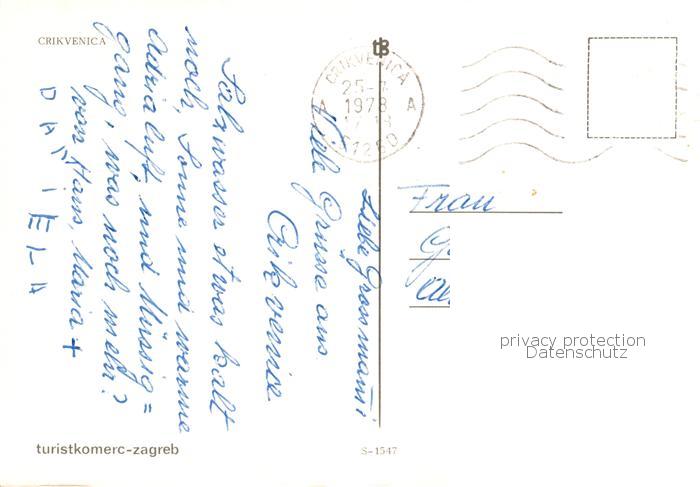 CRIKVENICA
Liebe Grossmutti
Viele Grüsse aus
Crikvenice
Salzwasser etwas kalt
noch, Sonne und warme
Adria luft, und Müssig=
gang, was noch mehr?
von Hans, Maria +
DANIELA
CRIKVENICA
25-
1978
A A
51260
tB
Frau
G
privacy protection
Datenschutz
turistkomerc-zagreb
S-1547